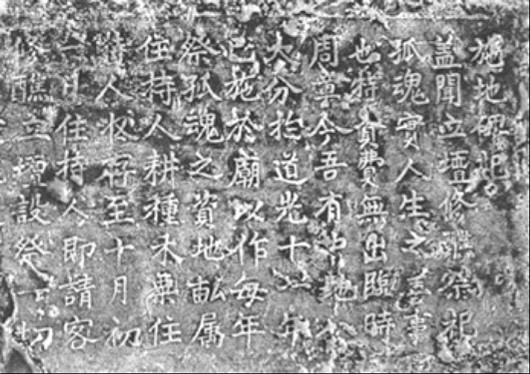 施地碑記
盖聞立壇修醮祭祀
孤魂實人生之善事
也特資費無出臨時
周章今吾有中地八
大分於道光十年
已施於廟以作每年
祭孤魂之資地畝属
住持人耕種木菓住
持人收存至十月初
一日住持人即請客
修醮立壇設祭一切